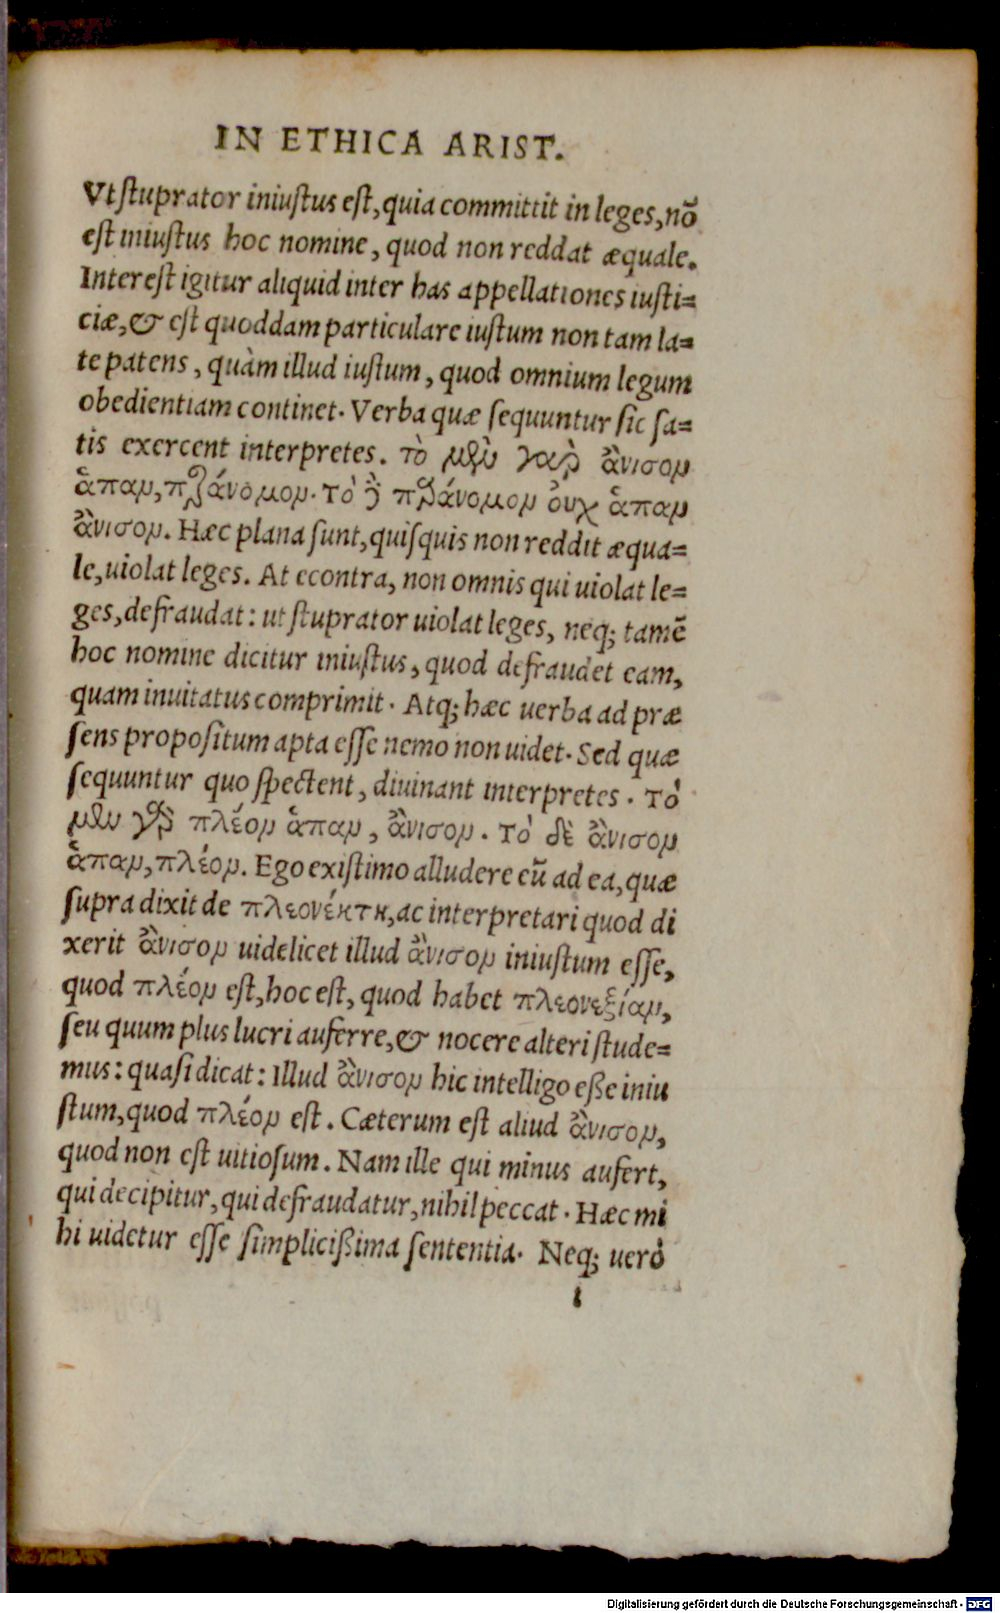 IN ETHICA ARIST.
Vt stuprator iniustus est, quia committit in leges, nō
est iniustus hoc nomine, quod non reddat æquale.
Interest igitur aliquid inter has appellationes iusti=
ciæ, & est quoddam particulare iustum non tam la=
te patens, quàm illud iustum, quod omnium legum
obedientiam continet. Verba quæ sequuntur sic sa=
tis exercent interpretes. τὸ μὲν γαρ̀ ἄνισον
ἅπαν, παράνομον. τὸ δὲ παράνομον οὐχ ἅπαν
ἄνισον. Hæc plana sunt, quisquis non reddit æqua=
le, uiolat leges. At econtra, non omnis qui uiolat le=
ges, defraudat: ut stuprator uiolat leges, neq; tamē
hoc nomine dicitur iniustus, quod defraudet eam,
quam inuitatus comprimit. Atq; hæc uerba ad præ
sens propositum apta esse nemo non uidet. Sed quæ
sequuntur quo spectent, diuinant interpretes. τὸ
μὲν γὰρ πλέον ἅπαν, ἄνισον. τὸ δὲ ἄνισον
ἅπαν, πλέον. Ego existimo alludere eū ad ea, quæ
supra dixit de πλεονέκτῃ, ac interpretari quod di
xerit ἄνισον uidelicet illud ἄνισον iniustum esse,
quod πλέον est, hoc est, quod habet πλεονεξίαν,
seu quum plus lucri auferre, & nocere alteri stude=
mus: quasi dicat: Illud ἄνισον hic intelligo eße iniu
stum, quod πλέον est. Cæterum est aliud ἄνισον,
quod non est uitiosum. Nam ille qui minus aufert,
qui decipitur, qui defraudatur, nihil peccat. Hæc mi
hi uidetur esse simplicißima sententia. Neq; uerò
i
Digitalisierung gefördert durch die Deutsche Forschungsgemeinschaft - DFG